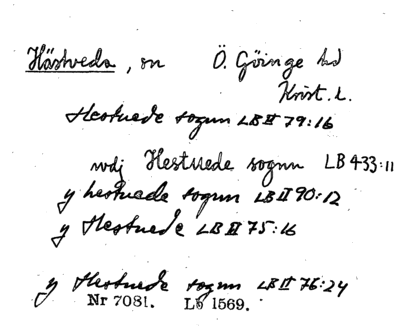 Hästveda, sn Ö. Göinge hd
Krist. l.
Hestuede sognn LB II 79:16
wdj Hestuede sognn LB 433:11
y hestuede sogun LB II 90:12
y Hestuede LB II 75:16
y Hestuede sognn LB II 76:24
Nr 7081. Lb 1569.